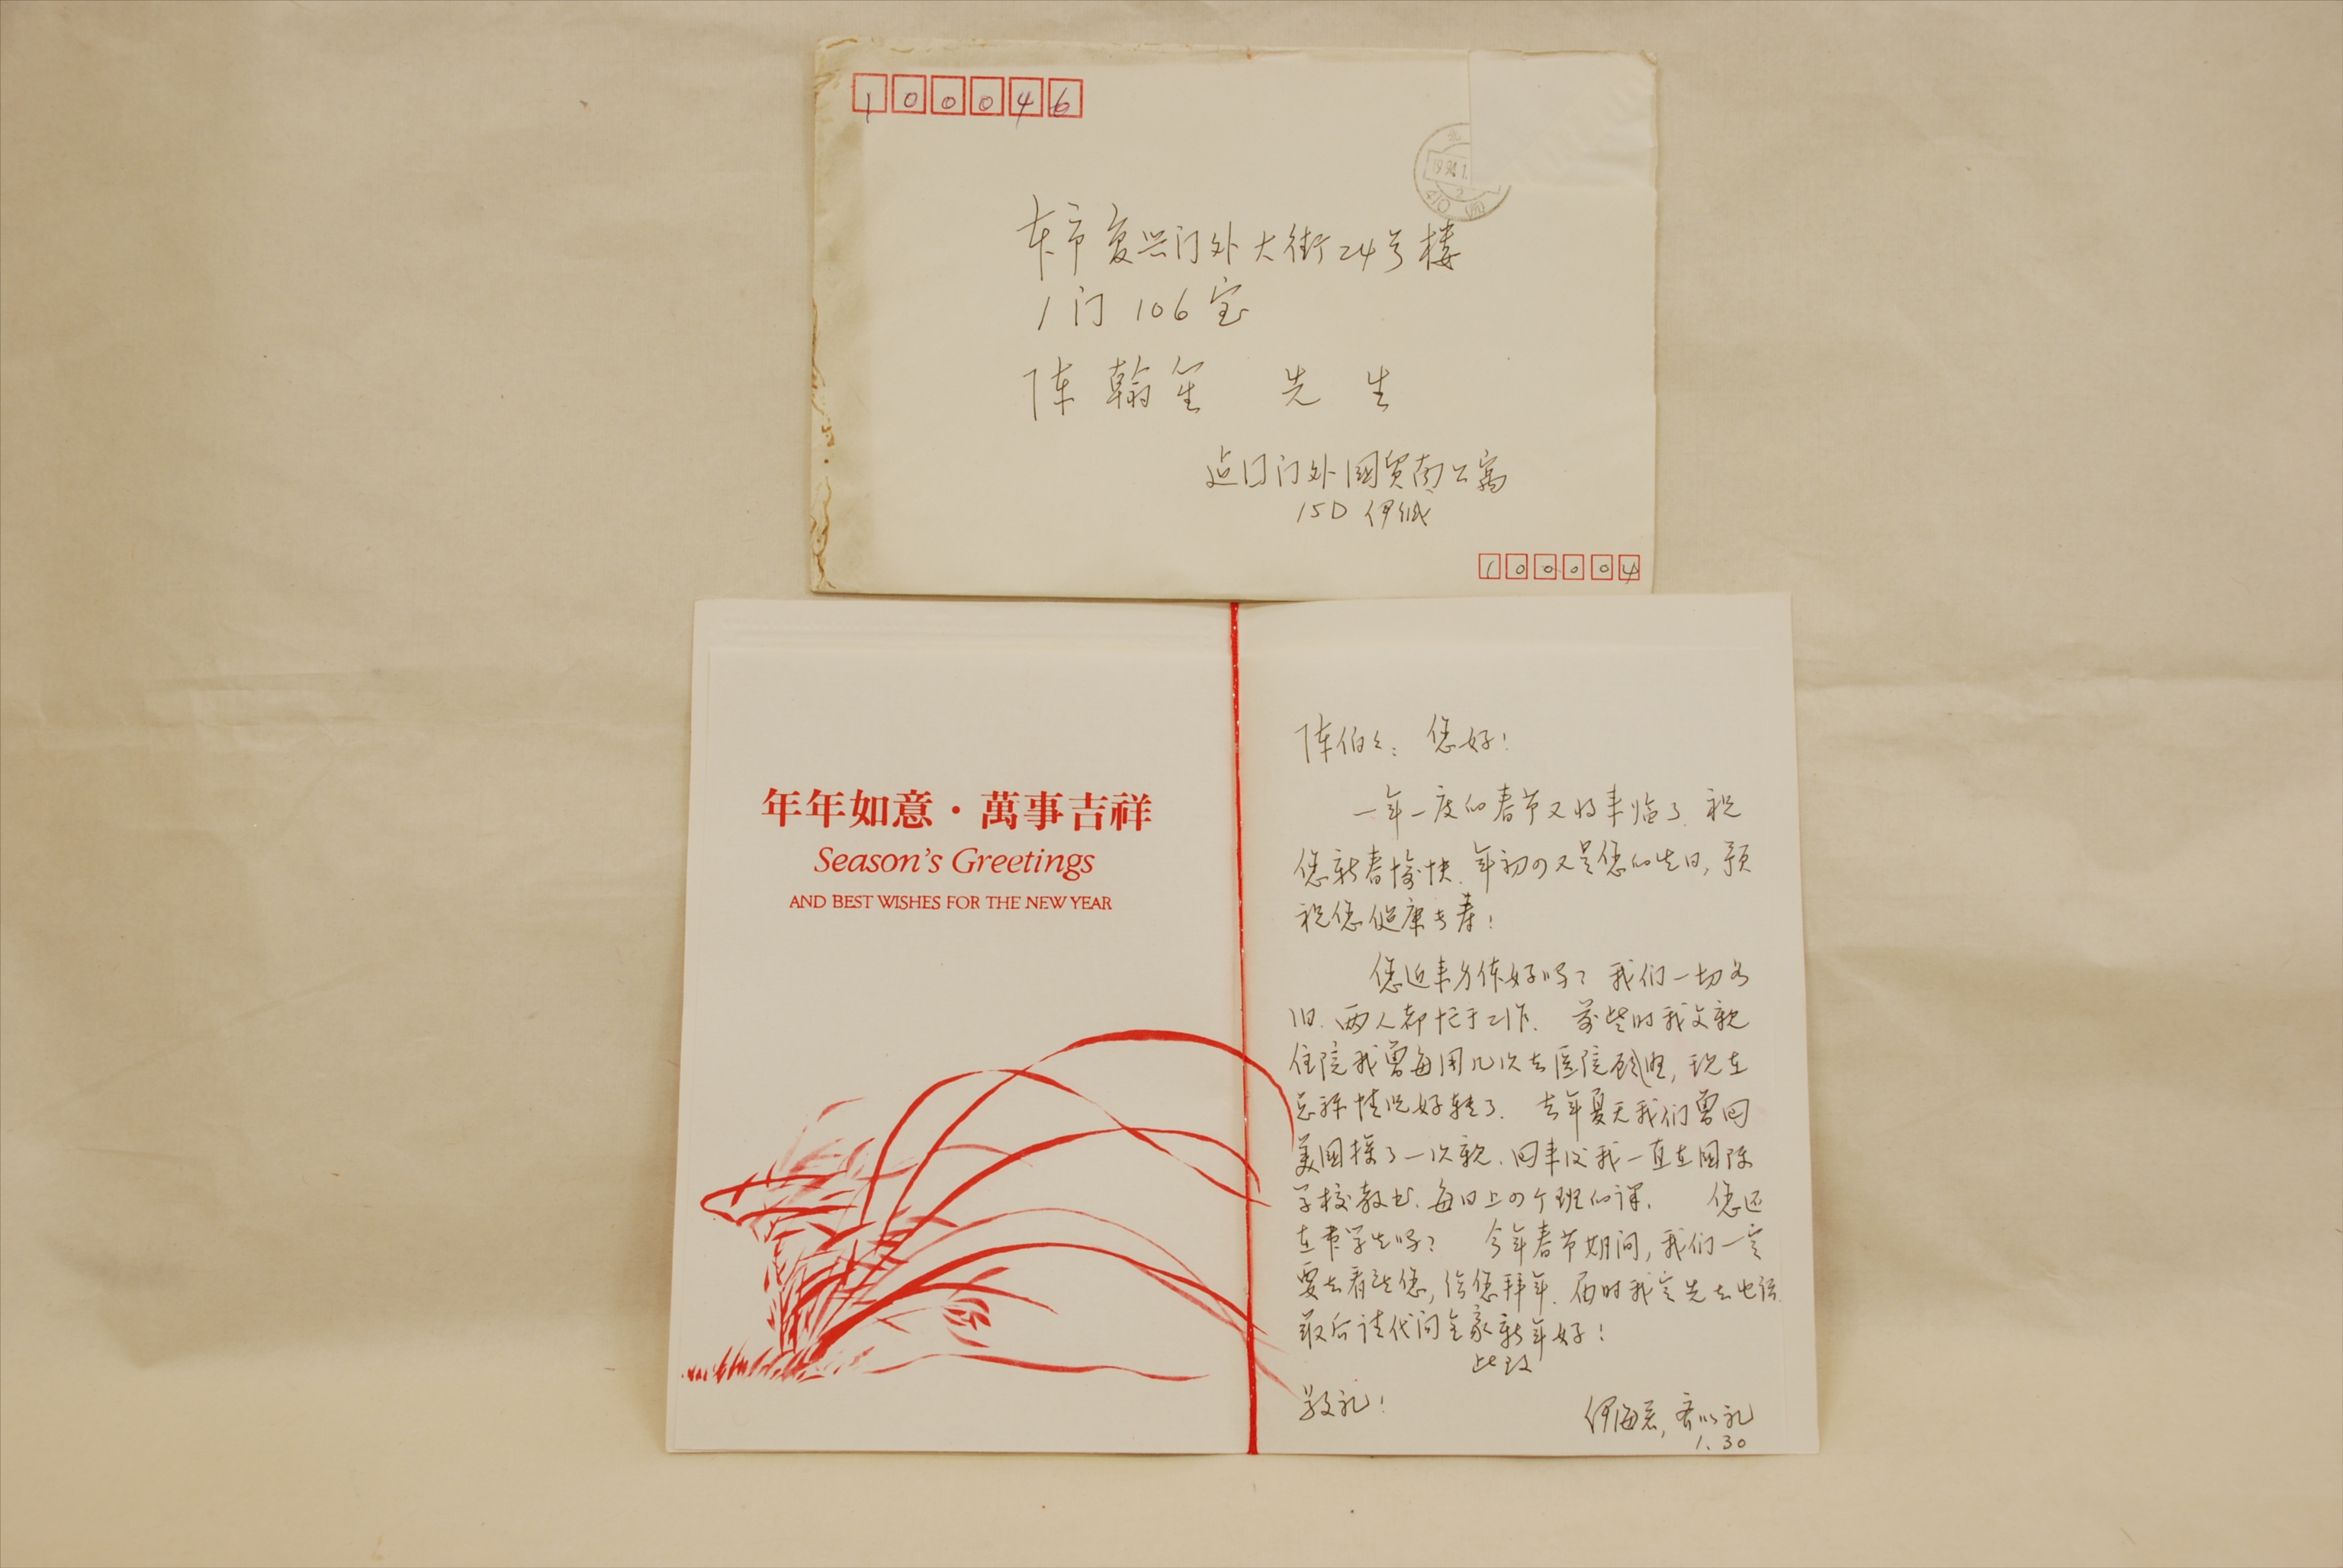 100046
本市复兴门外大街24号楼
1门 106室
陈翰笙 先生
建国门外国贸南公寓
15D 伊缄
100004
年年如意·萬事吉祥
Season's Greetings
AND BEST WISHES FOR THE NEW YEAR
陈伯伯: 您好!
一年一度的春节又将来临了. 祝
您新春愉快. 年初四又是您的生日, 预
祝您健康长寿!
您近来身体好吗? 我们一切如
旧. 两人都忙于工作. 前些时我父亲
住院我曾每周几次去医院照顾, 现在
总算情况好转了. 去年夏天我们曾回
美国探了一次亲. 回来后我一直在国际
学校教书. 每日上四个班的课. 您还
在带学生吗? 今年春节期间, 我们一定
要去看望您, 给您拜年. 届时我会先去电话.
最后请代问全家新年好!
此致
敬礼!
伊海若,
1.30